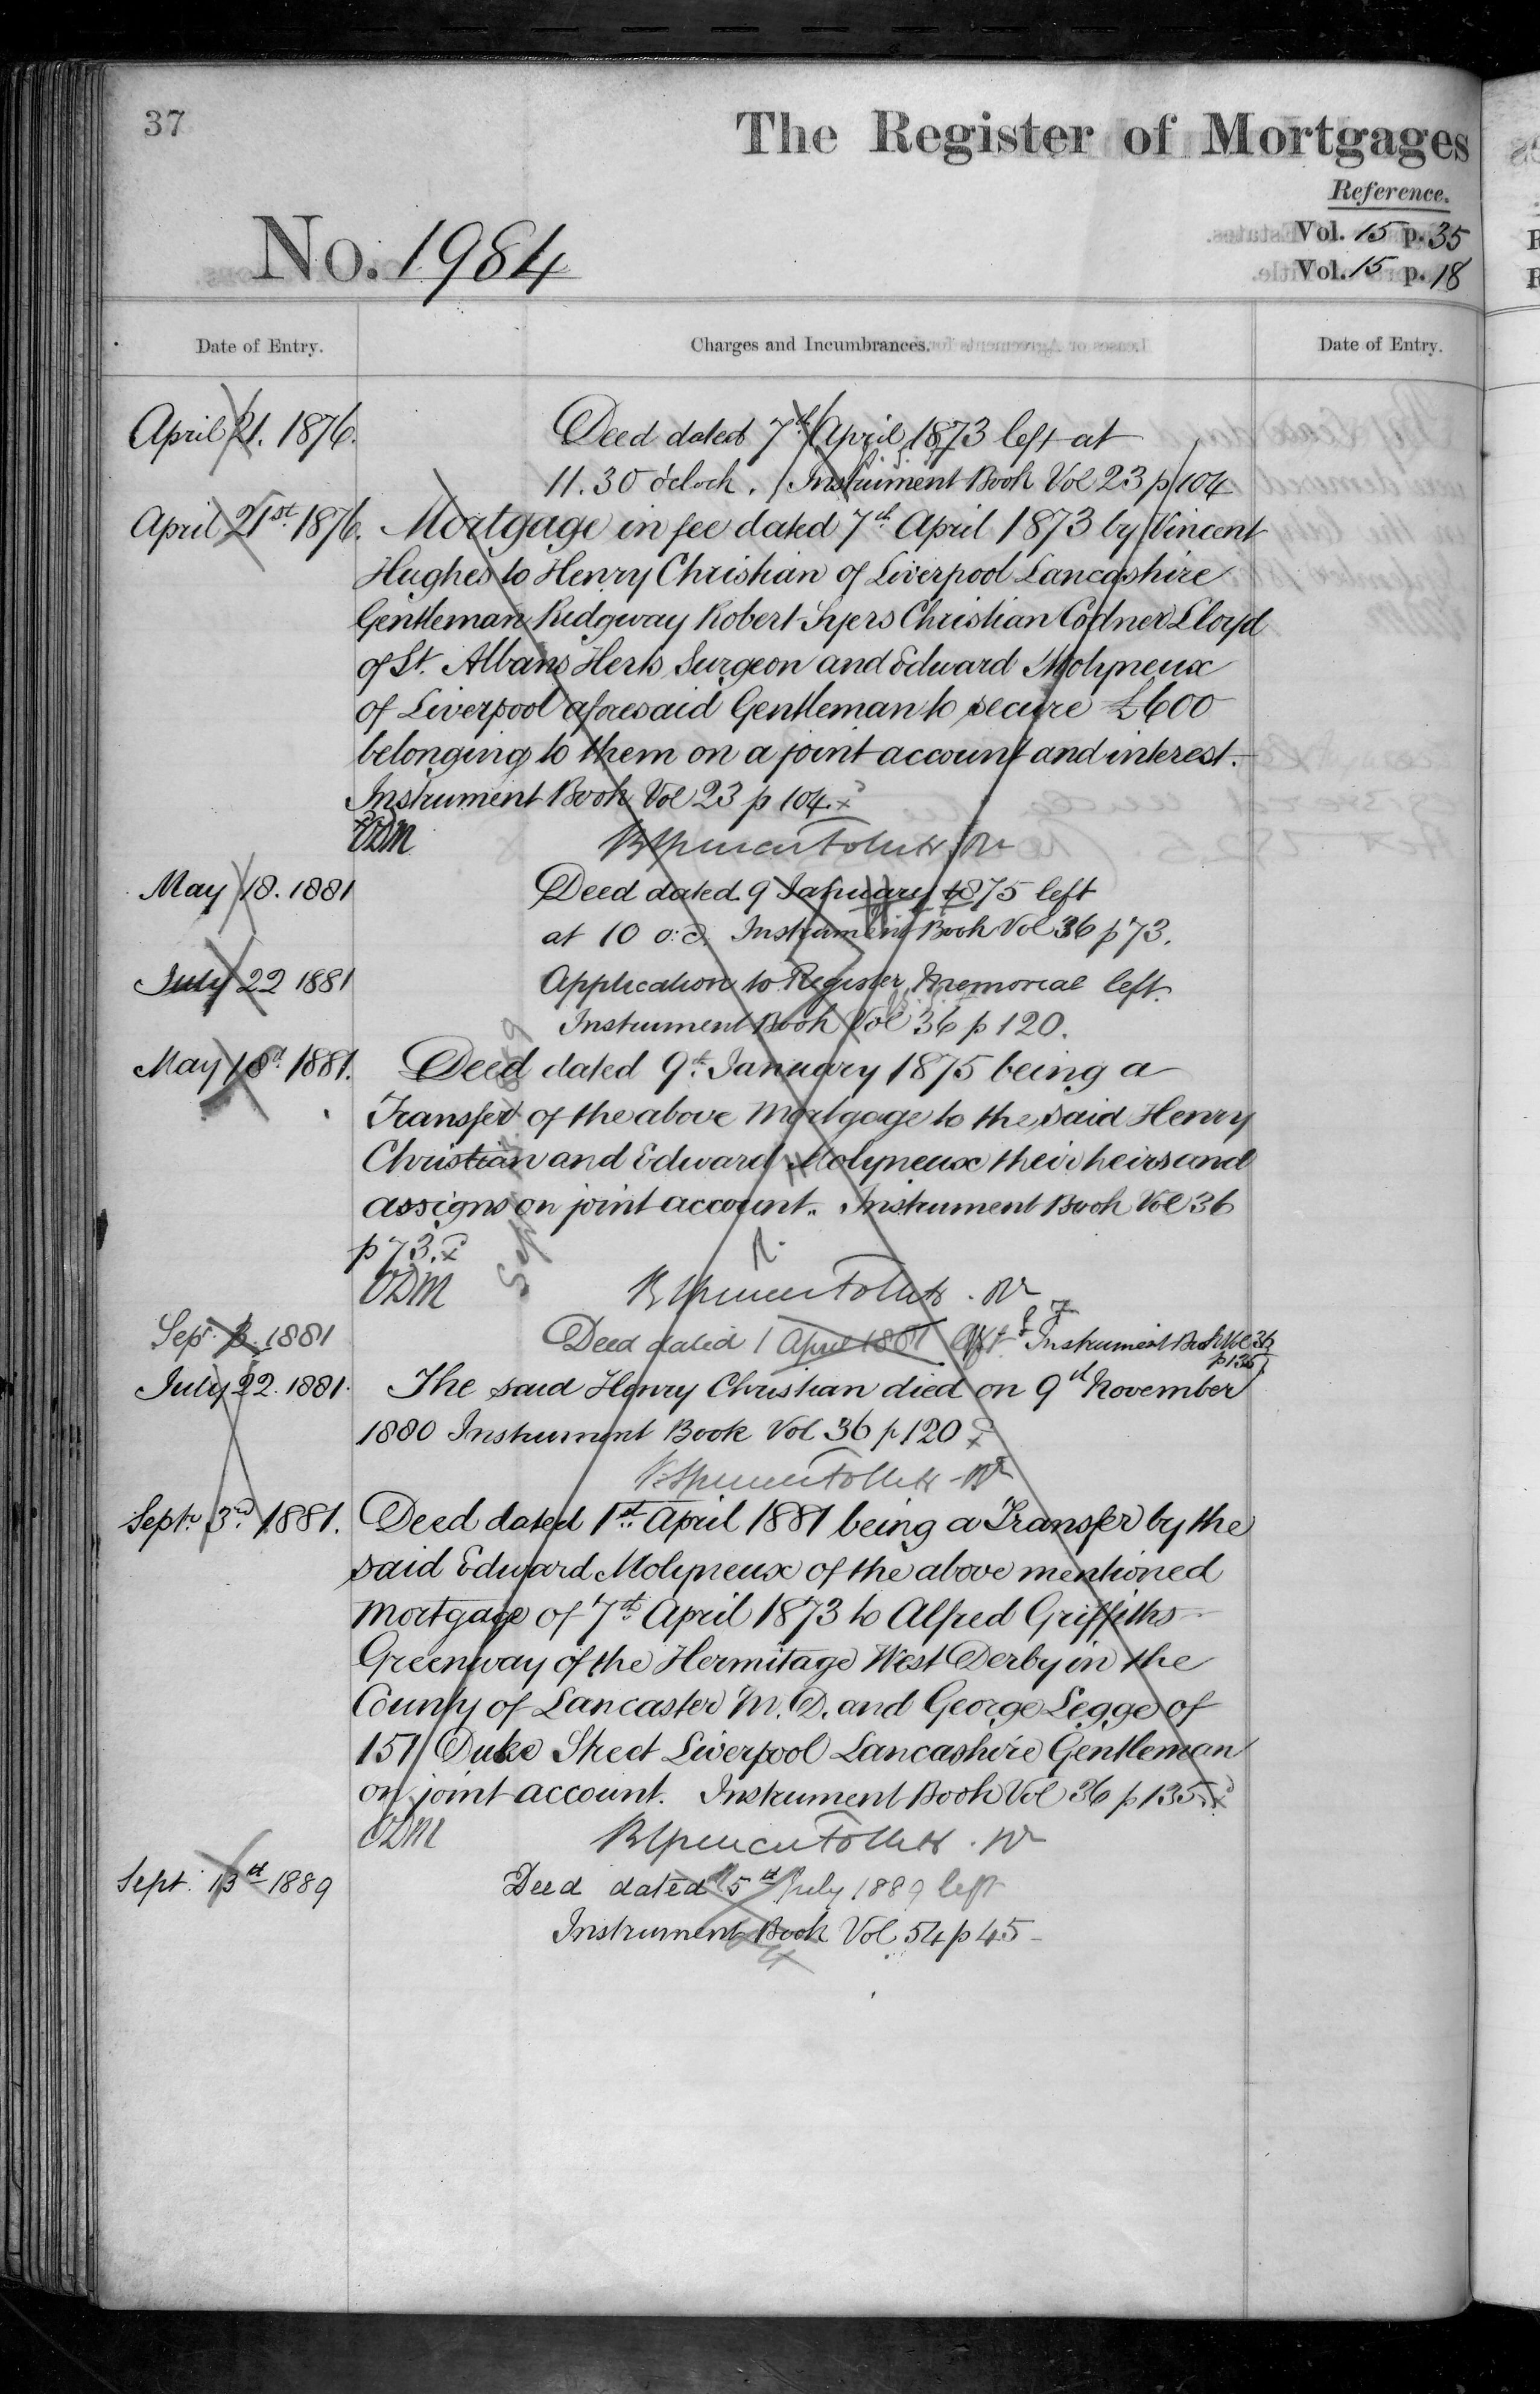 37
The Register of Mortgages
Reference.
Vol. 15 p. 35
Vol. 15 p. 18
No. 1984
Date of Entry.
Charges and Incumbrances.
Date of Entry.
April 21. 1876.
Deed dated 7th April 1873 left at
11.30 o'clock. Instrument Book Vol 23 p 104
April 21st 1876.
Mortgage in fee dated 7th April 1873 by Vincent
Hughes to Henry Christian of Liverpool Lancashire
Gentleman Ridgway Robert Syers Christian Codner Lloyd
of St. Albans Herts Surgeon and Edward Molyneux
of Liverpool aforesaid Gentleman to secure £600
belonging to them on a joint account and interest.
Instrument Book Vol 23 p 104.
ODM
May 18. 1881
Deed dated 9 January 1875 left
at 10 o:c. Instrument Book Vol 36 p 73.
July 22 1881
Application to Register Memorial left.
Instrument Book Vol 36 p 120.
May 18th 1881.
Deed dated 9th January 1875 being a
Transfer of the above Mortgage to the said Henry
Christian and Edward Molyneux their heirs and
assigns on joint account. Instrument Book Vol 36
p 73.
ODM
Sep. 3. 1881
Deed dated 1 April 1881 left Instrument Book Vol 36
p 135
July 22. 1881.
The said Henry Christian died on 9th November
1880 Instrument Book Vol 36 p 120
Septr. 3rd 1881.
Deed dated 1st April 1881 being a Transfer by the
said Edward Molyneux of the above mentioned
Mortgage of 7th April 1873 to Alfred Griffiths
Greenway of the Hermitage West Derby in the
County of Lancaster M.D. and George Legge of
151 Duke Street Liverpool Lancashire Gentleman
on joint account. Instrument Book Vol 36 p 135.
ODM
Sept. 13th 1889
Deed dated 5th July 1889 left
Instrument Book Vol 54 p 45